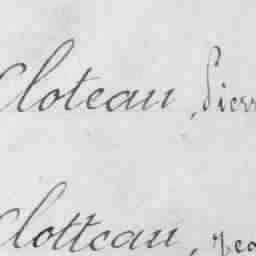 Cloteau, Pierr
Clotteau, Jea